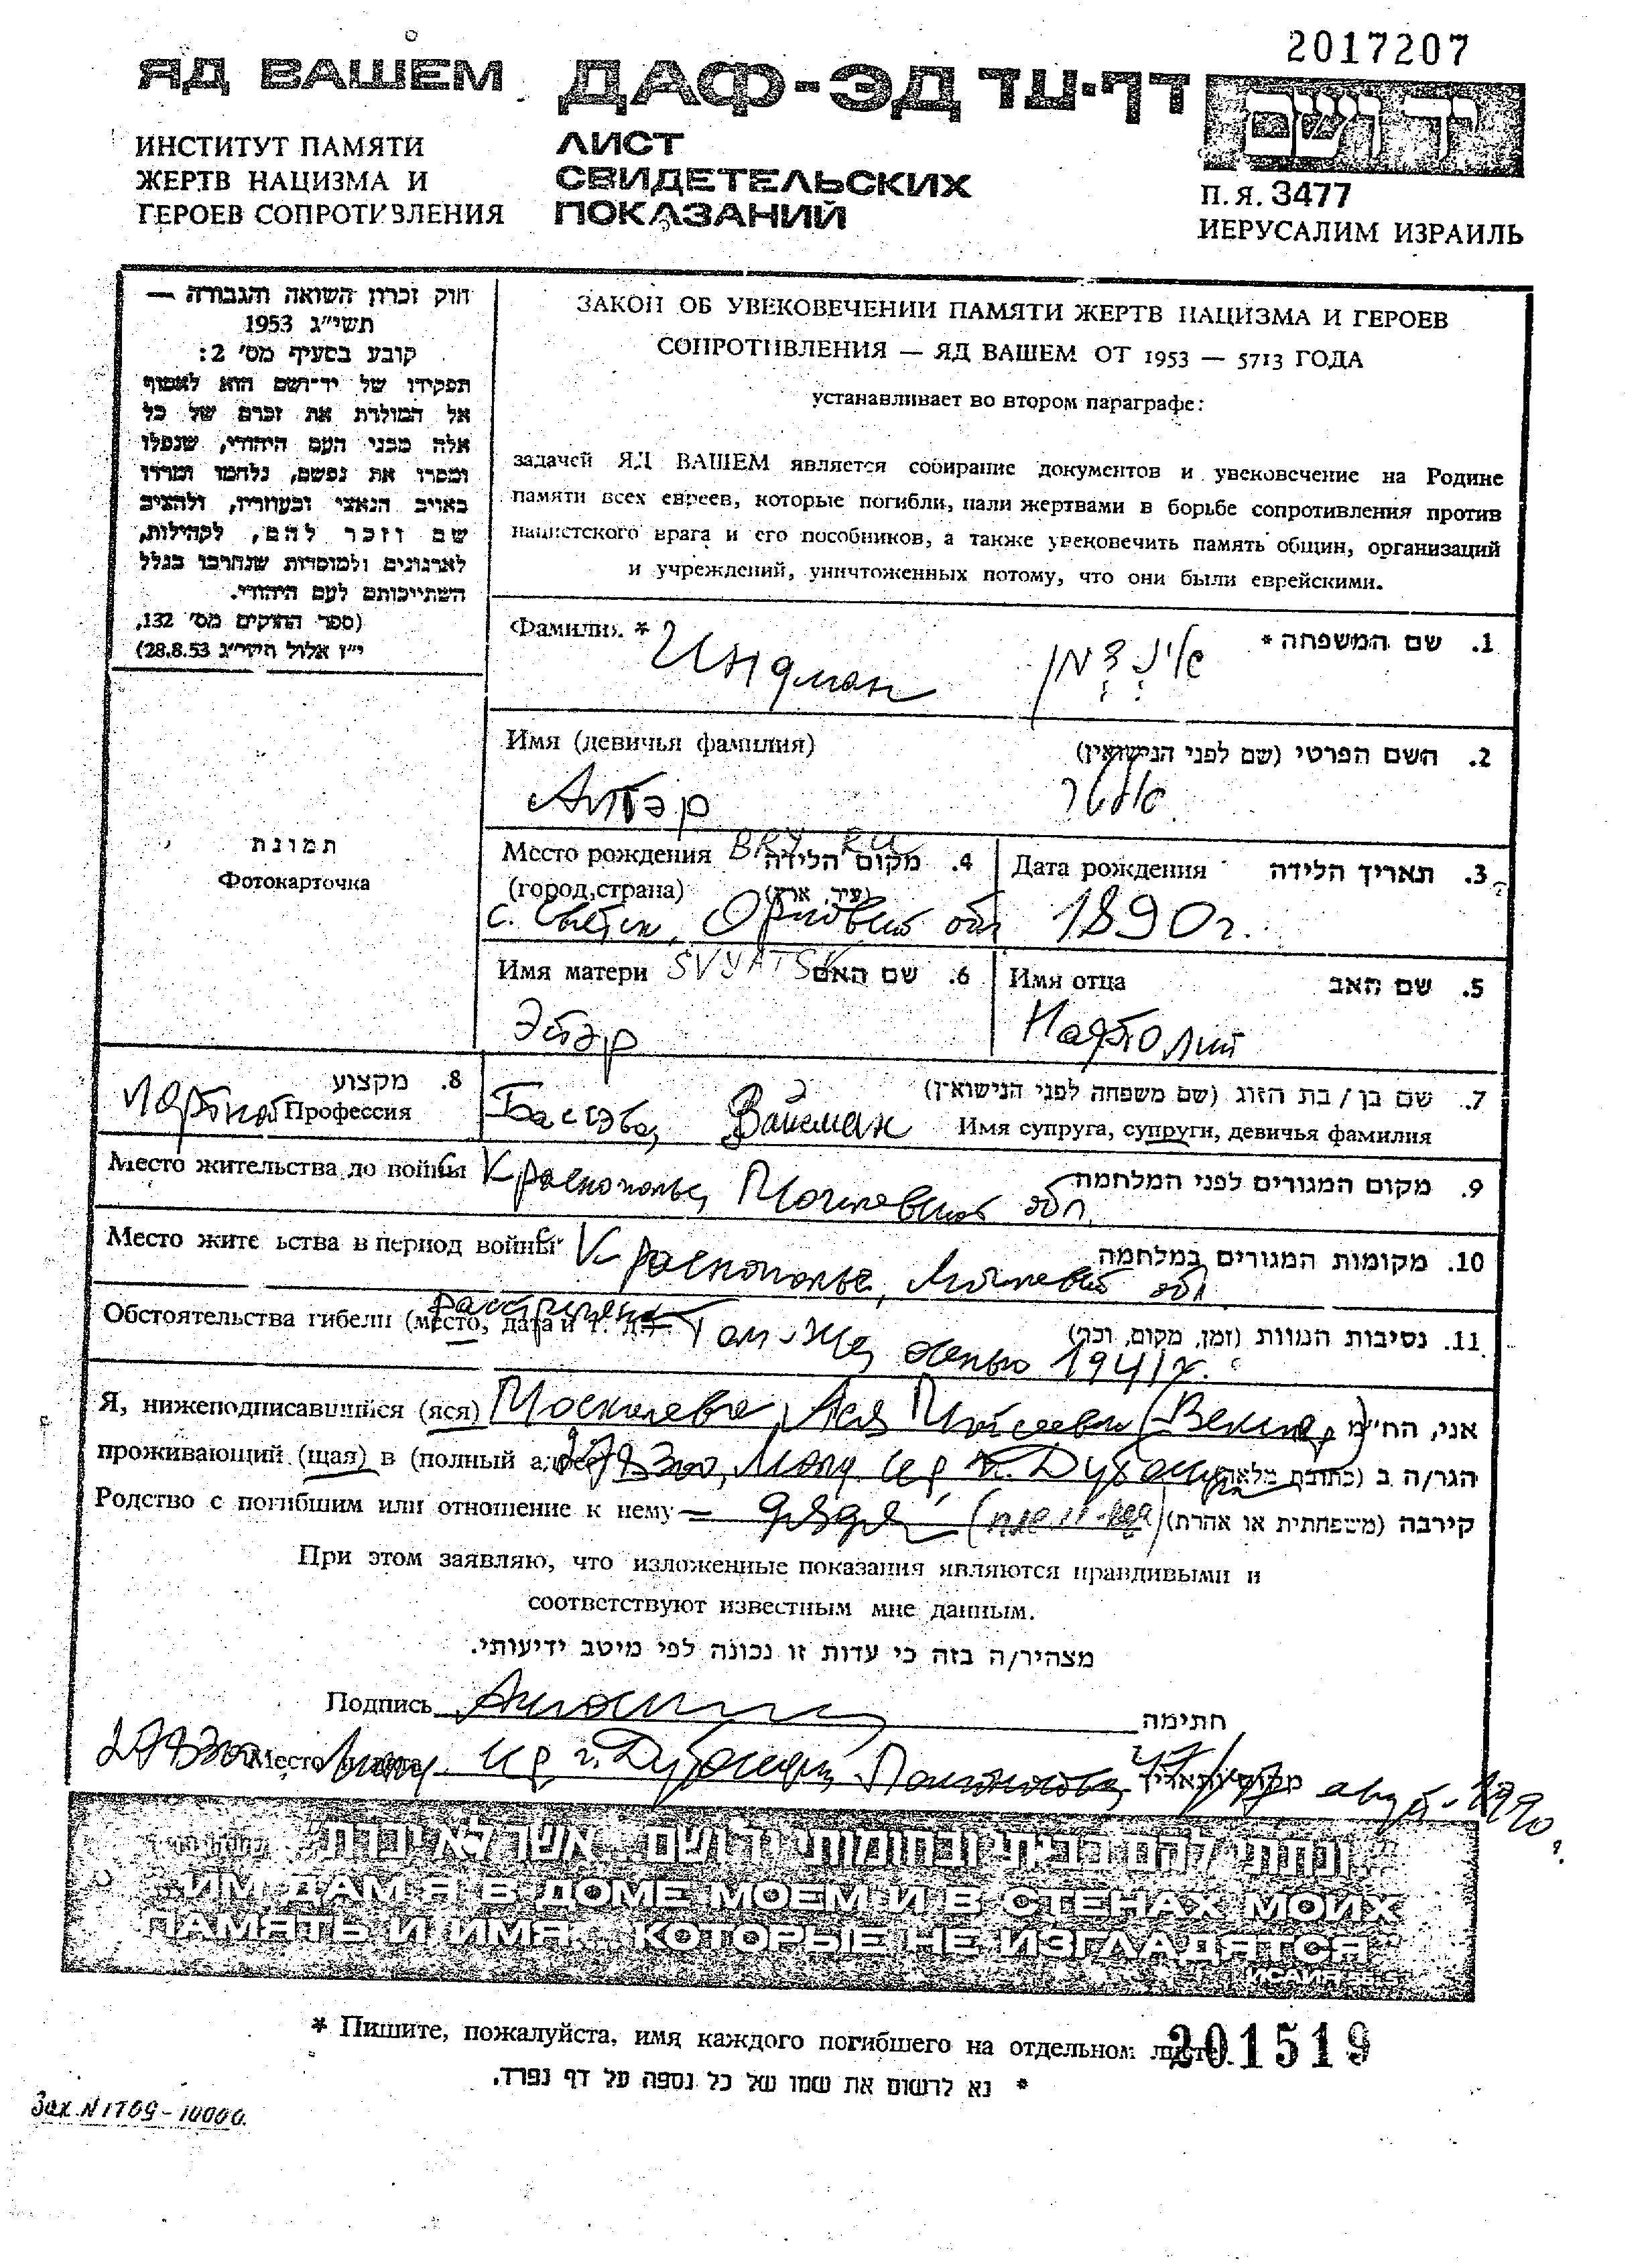 2017207
ЯД ВАШЕМ ДАФ-ЭД דף-עד יד ושם
ИНСТИТУТ ПАМЯТИ
ЖЕРТВ НАЦИЗМА И
ГЕРОЕВ СОПРОТИВЛЕНИЯ
ЛИСТ
СВИДЕТЕЛЬСКИХ
ПОКАЗАНИЙ
П. Я. 3477
ИЕРУСАЛИМ ИЗРАИЛЬ
חוק זכרון השואה והגבורה —
תשי"ג 1953
קובע בסעיף מס' 2:
תפקידו של יד-ושם הוא לאסוף
אל המולדת את זכרם של כל
אלה מבני העם היהודי, שנפלו
ומסרו את נפשם, נלחמו ומרדו
באויב הנאצי ובעוזריו, ולהציב
שם וזכר להם, לקהילות,
לארגונים ולמוסדות שנחרבו בגלל
השתייכותם לעם היהודי.
(ספר החוקים מס' 132,
י"ז אלול תשי"ג 28.8.53)
ЗАКОН ОБ УВЕКОВЕЧЕНИИ ПАМЯТИ ЖЕРТВ НАЦИЗМА И ГЕРОЕВ
СОПРОТИВЛЕНИЯ — ЯД ВАШЕМ ОТ 1953 — 5713 ГОДА
устанавливает во втором параграфе:
задачей ЯД ВАШЕМ является собирание документов и увековечение на Родине
памяти всех евреев, которые погибли, пали жертвами в борьбе сопротивления против
нацистского врага и его пособников, а также увековечить память общин, организаций
и учреждений, уничтоженных потому, что они были еврейскими.
Фамилия * 1. שם המשפחה *
Индман אינדמן
Имя (девичья фамилия) 2. השם הפרטי (שם לפני הנישואין)
Алтэр אלטר
תמונת
Фотокарточка
Место рождения BRY RU 4. מקום הלידה Дата рождения 3. תאריך הלידה
(город, страна) (עיר, ארץ)
с. Святск, Орловской обл 1890г.
Имя матери SVYATSK 6. שם האם Имя отца 5. שם האב
Эстэр Нафтолий
8. מקצוע 7. שם בן / בת הזוג (שם משפחה לפני הנישואין)
Профессия Басшэва, Вайсман Имя супруга, супруги, девичья фамилия
Место жительства до войны Краснополье, Могилевской обл. 9. מקום המגורים לפני המלחמה
Место жите ьства в период войны Краснополье, Могилевской обл 10. מקומות המגורים במלחמה
Обстоятельства гибели (место, дата и т. д.) расстрелян Там-же, осенью 1941г. 11. נסיבות המוות (זמן, מקום, וכו')
Я, нижеподписавшийся (яся) Москалева Ася Моисеевна אני, הח"מ
проживающий (щая) в (полный адрес) Дубоссары הגר/ה ב (כתובת מלאה)
Родство с погибшим или отношение к нему — дядя קירבה (משפחתית או אחרת)
При этом заявляю, что изложенные показания являются правдивыми и
соответствуют известным мне данным.
מצהיר/ה בזה כי עדות זו נכונה לפי מיטב ידיעותי.
Подпись חתימה
Место г. Дубоссары מקום ותאריך 1990г.
"ונתתי להם בביתי ובחומותי יד ושם... אשר לא יכרת"
"...ИМ ДАМ Я В ДОМЕ МОЕМ И В СТЕНАХ МОИХ
ПАМЯТЬ И ИМЯ... КОТОРЫЕ НЕ ИЗГЛАДЯТСЯ"
ИСАИЯ 56.5
* Пишите, пожалуйста, имя каждого погибшего на отдельном листе.
201519
* נא לרשום את שמו של כל נספה על דף נפרד.
Зак. N 1709-10000.